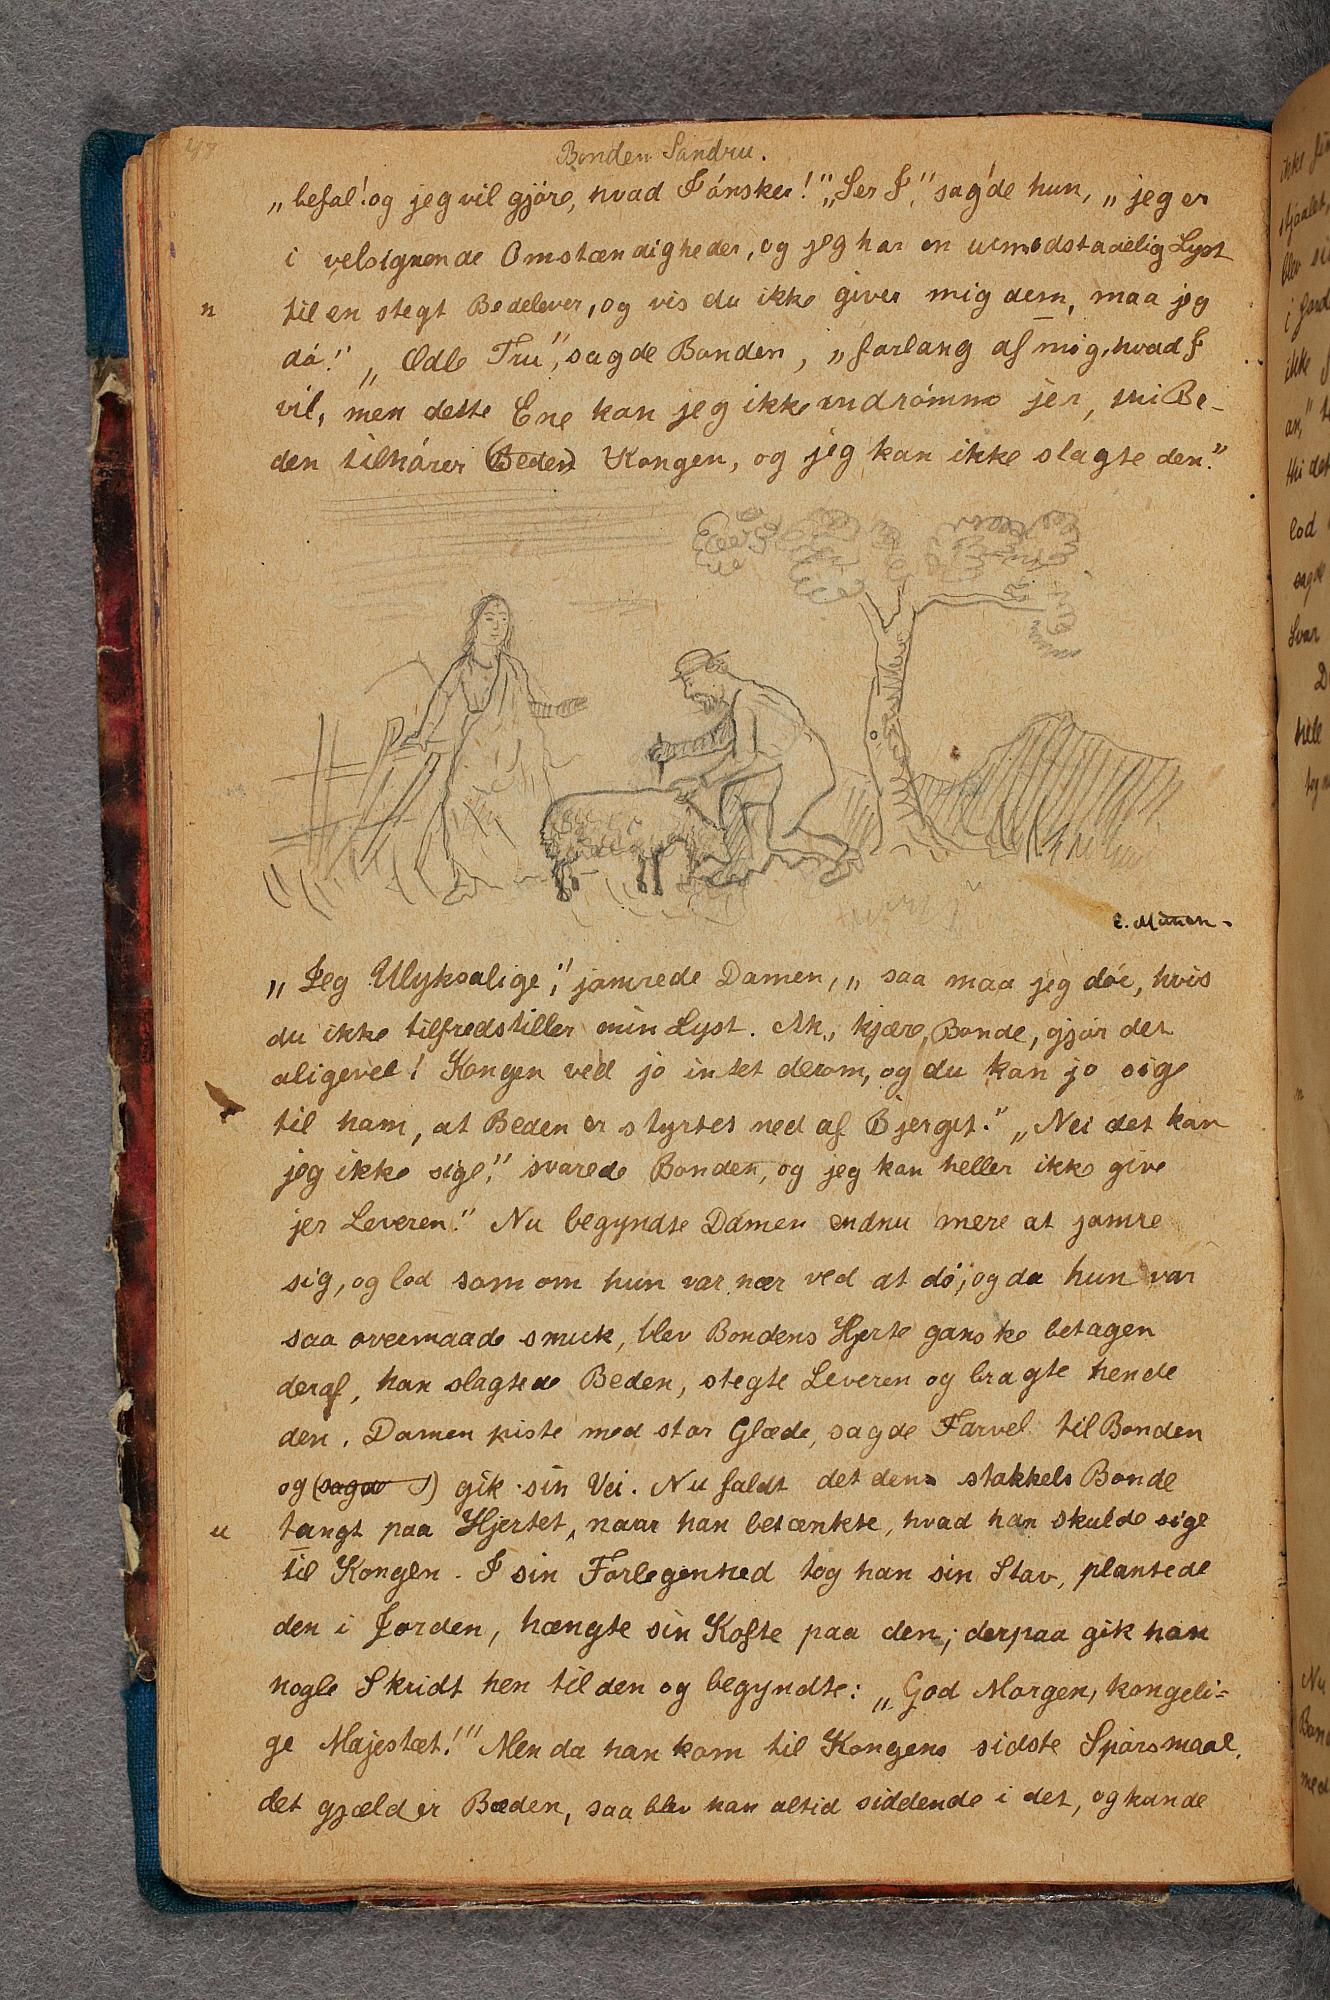 48
Bonden Sandru.
„befal! og jeg vil gjöre, hvad I ónsker!" „Ser I," sagde hun, „jeg er
i velsignende Omstændigheder, og jeg har en uimodstaaelig Lyst
n til en stegt Bedelever, og vis du ikke giver mig dem, maa jeg
dó!" „Ædle Fru", sagde Bonden, „forlang af mig, hvad I
vil, men dette Ene kan jeg ikke indrómme jer, thi Be-
den tilhórer (Beden) Kongen, og jeg kan ikke slagte den."
E. Munch.
„Jeg Ulyksalige," jamrede Damen, „saa maa jeg dóe, hvis
du ikke tilfredstiller min Lyst. Ak, kjære Bonde, gjór det
aligevel! Kongen ved jo intet derom, og du kan jo sige
til ham, at Beden er styrtet ned af Bjerget." „Nei det kan
jeg ikke sige," svarede Bonden, og jeg kan heller ikke give
jer Leveren." Nu begyndte Damen endnu mere at jamre
sig, og lod som om hun var nær ved at dó, og da hun var
saa overmaade smuk, blev Bondens Hjerte ganske betagen
deraf, han slagtede Beden, stegte Leveren og bragte hende
den. Damen spiste med stor Glæde, sagde Farvel til Bonden
og (sagde) gik sin Vei. Nu faldt det den stakkels Bonde
u tangt paa Hjertet, naar han betænkte, hvad han skulde sige
til Kongen. I sin Forlegenhed tog han sin Stav, plantede
den i Jorden, hængte sin Kofte paa den; derpaa gik han
nogle Skridt hen til den og begyndte: „God Morgen, kongeli-
ge Majestæt!" Men da han kom til Kongens sidste Spórsmaal,
det gjælder Beden, saa blev han altid siddende i det, og kunde